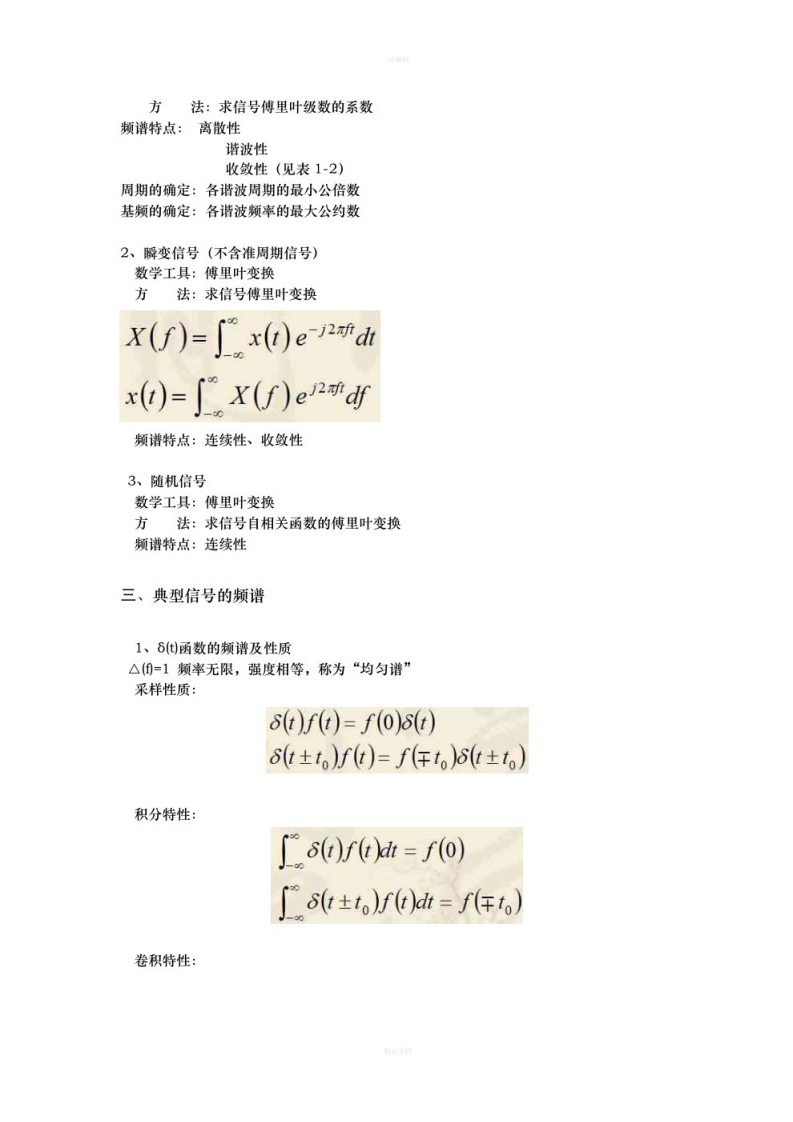 方　　法：求信号傅里叶级数的系数
频谱特点：　离散性
谐波性
收敛性（见表 1-2）
周期的确定：各谐波周期的最小公倍数
基频的确定：各谐波频率的最大公约数
2、瞬变信号（不含准周期信号）
数学工具：傅里叶变换
方　　法：求信号傅里叶变换
X(f)=∫_{-∞}^{∞} x(t) e^{-j2πft}dt
x(t)=∫_{-∞}^{∞} X(f) e^{j2πft}df
频谱特点：连续性、收敛性
3、随机信号
数学工具：傅里叶变换
方　　法：求信号自相关函数的傅里叶变换
频谱特点：连续性
三、典型信号的频谱
1、δ(t)函数的频谱及性质
△(f)=1 频率无限，强度相等，称为“均匀谱”
采样性质：
δ(t)f(t)= f(0)δ(t)
δ(t±t₀)f(t)= f(∓t₀)δ(t±t₀)
积分特性：
∫_{-∞}^{∞} δ(t)f(t)dt = f(0)
∫_{-∞}^{∞} δ(t±t₀)f(t)dt = f(∓t₀)
卷积特性：